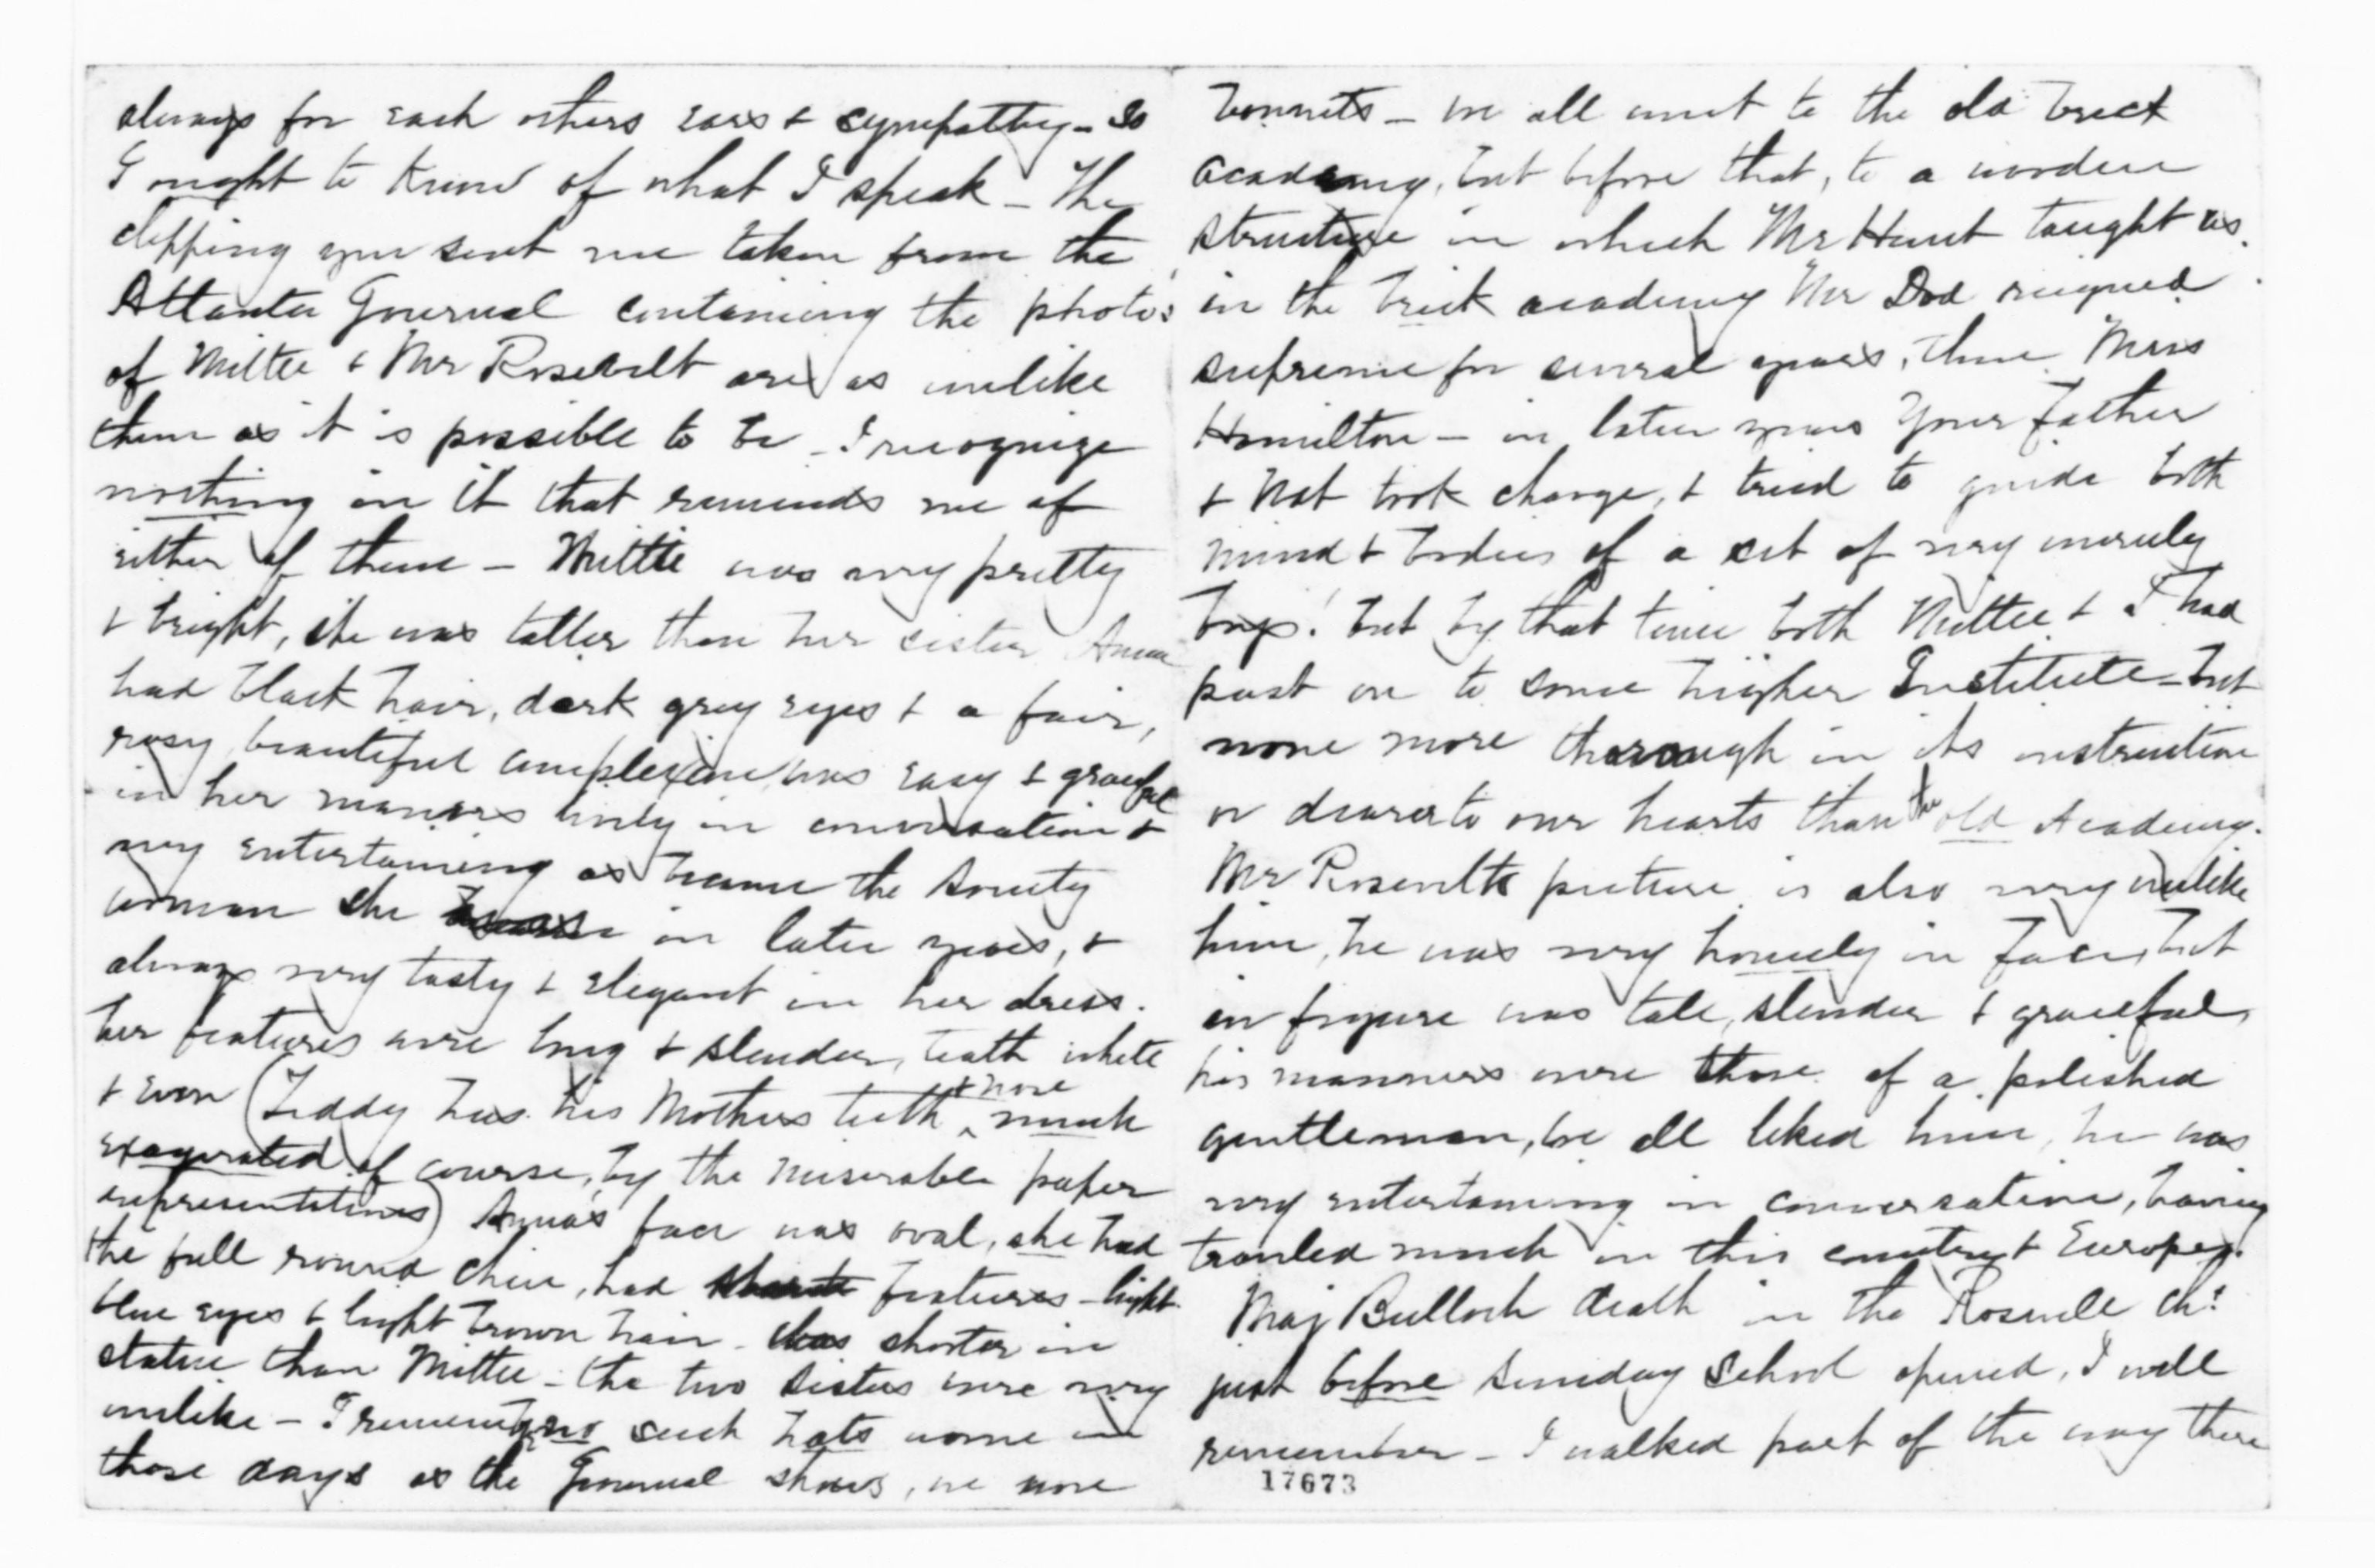 always for each others ears & sympathy - So
I ought to know of what I speak - The
clipping you sent me taken from the
Atlanta Journal containing the photos
of Mittie & Mr Rosevelt are as unlike
them as it is possible to be - I recognize
nothing in it that reminds me of
either of them - Mittie was very pretty
& bright, she was taller than her sister Anna
had black hair, dark grey eyes & a fair,
rosy, beautiful complexion, was easy & graceful
in her maners lively in conversation &
very entertaining as became the Society
woman she in later years, &
always very tasty & elegant in her dress.
her features were long & slender, teath white
& even (Teddy has his Mothers teeth & nose much
exagerated of course, by the miserable paper
representations) Anna's face was oval, she had
the full round chin, had short features - light
blue eyes & light brown hair - was shorter in
stature than Mittie - the two Sisters were very
unlike - I remember no such hats worne in
those days as the Journal shows, we wore
bonnets - we all went to the old brick
academy, but before that, to a wooden
structure in which Mr Hunt taught us.
in the brick academy Mr Dod reigned
supreme for several years, then Miss
Hamilton - in later years Your father
& Nat took charge, & tried to guide both
mind & bodies of a set of very unruly
boys! but by that time both Mittie & I had
past on to some higher Institute - but
none more thorough in its instruction
or dearer to our hearts than the old Academy.
Mr Rosevelts picture is also very unlike
him, he was very homely in face, but
in figure was tall, slender & graceful,
his manners were those of a polished
gentleman, we all liked him, he was
very entertaining in conversation, having
traveled much in this country & Europe.
Maj Bulloch death in the Roswell Ch:
just before Sunday School opened, I well
remember - I walked part of the way there
17673